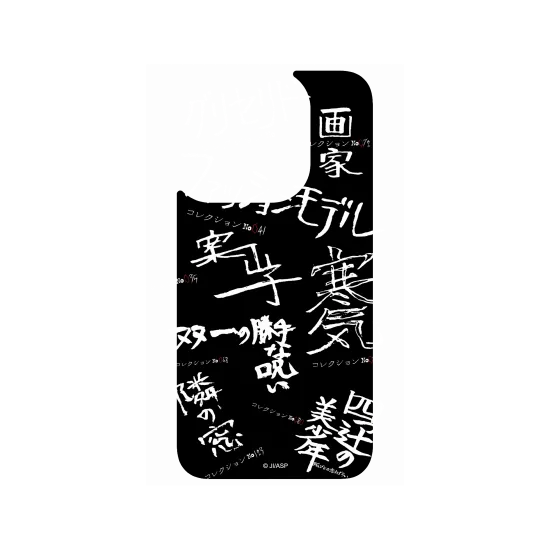 画家
コレクション No
モデル
コレクション No041
案山子
寒気
双一の勝手な呪い
コレクション No
コレクション No
隣の窓
コレクション No
四つ辻の美少年
コレクション No
© JI/ASP